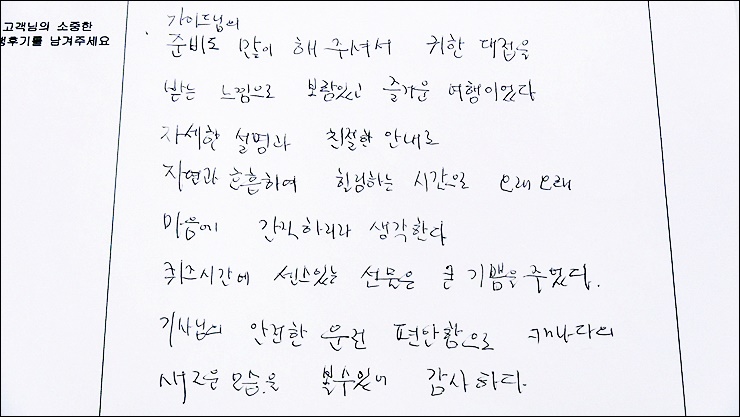 고객님의 소중한
행후기를 남겨주세요
가이드님의
준비도 많이 해 주셔서 귀한 대접을
받는 느낌으로 보람있고 즐거운 여행이었다
자세한 설명과 친절한 안내로
자연과 호흡하여 힐링하는 시간으로 오래오래
마음에 간직하리라 생각한다
퀴즈시간에 센스있는 선물은 큰 기쁨을 주었다.
기사님의 안전한 운전 편안함으로 캐나다의
새로운 모습을 볼수있어 감사하다.